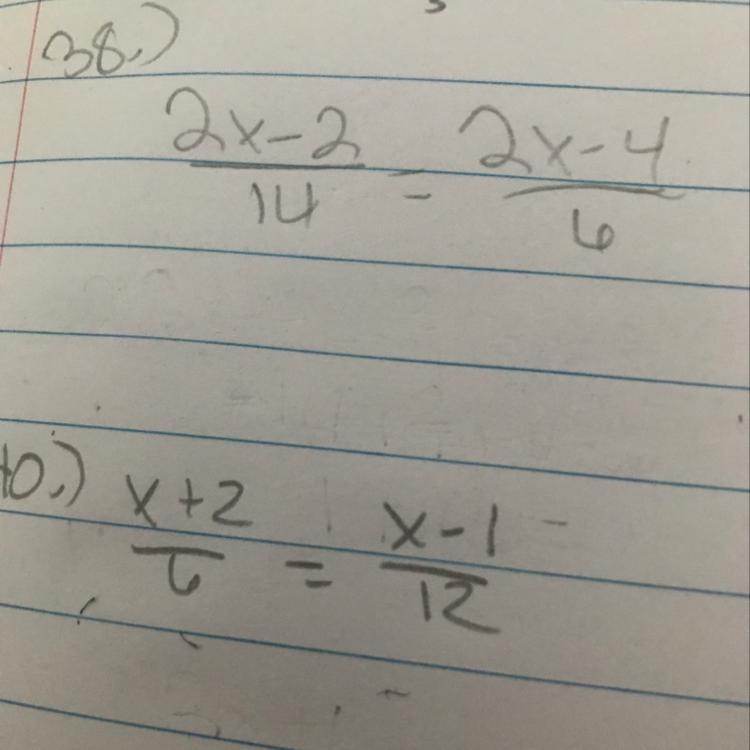 38.)
2x-2
14
=
2x-4
6
40.)
x+2
6
=
x-1
12